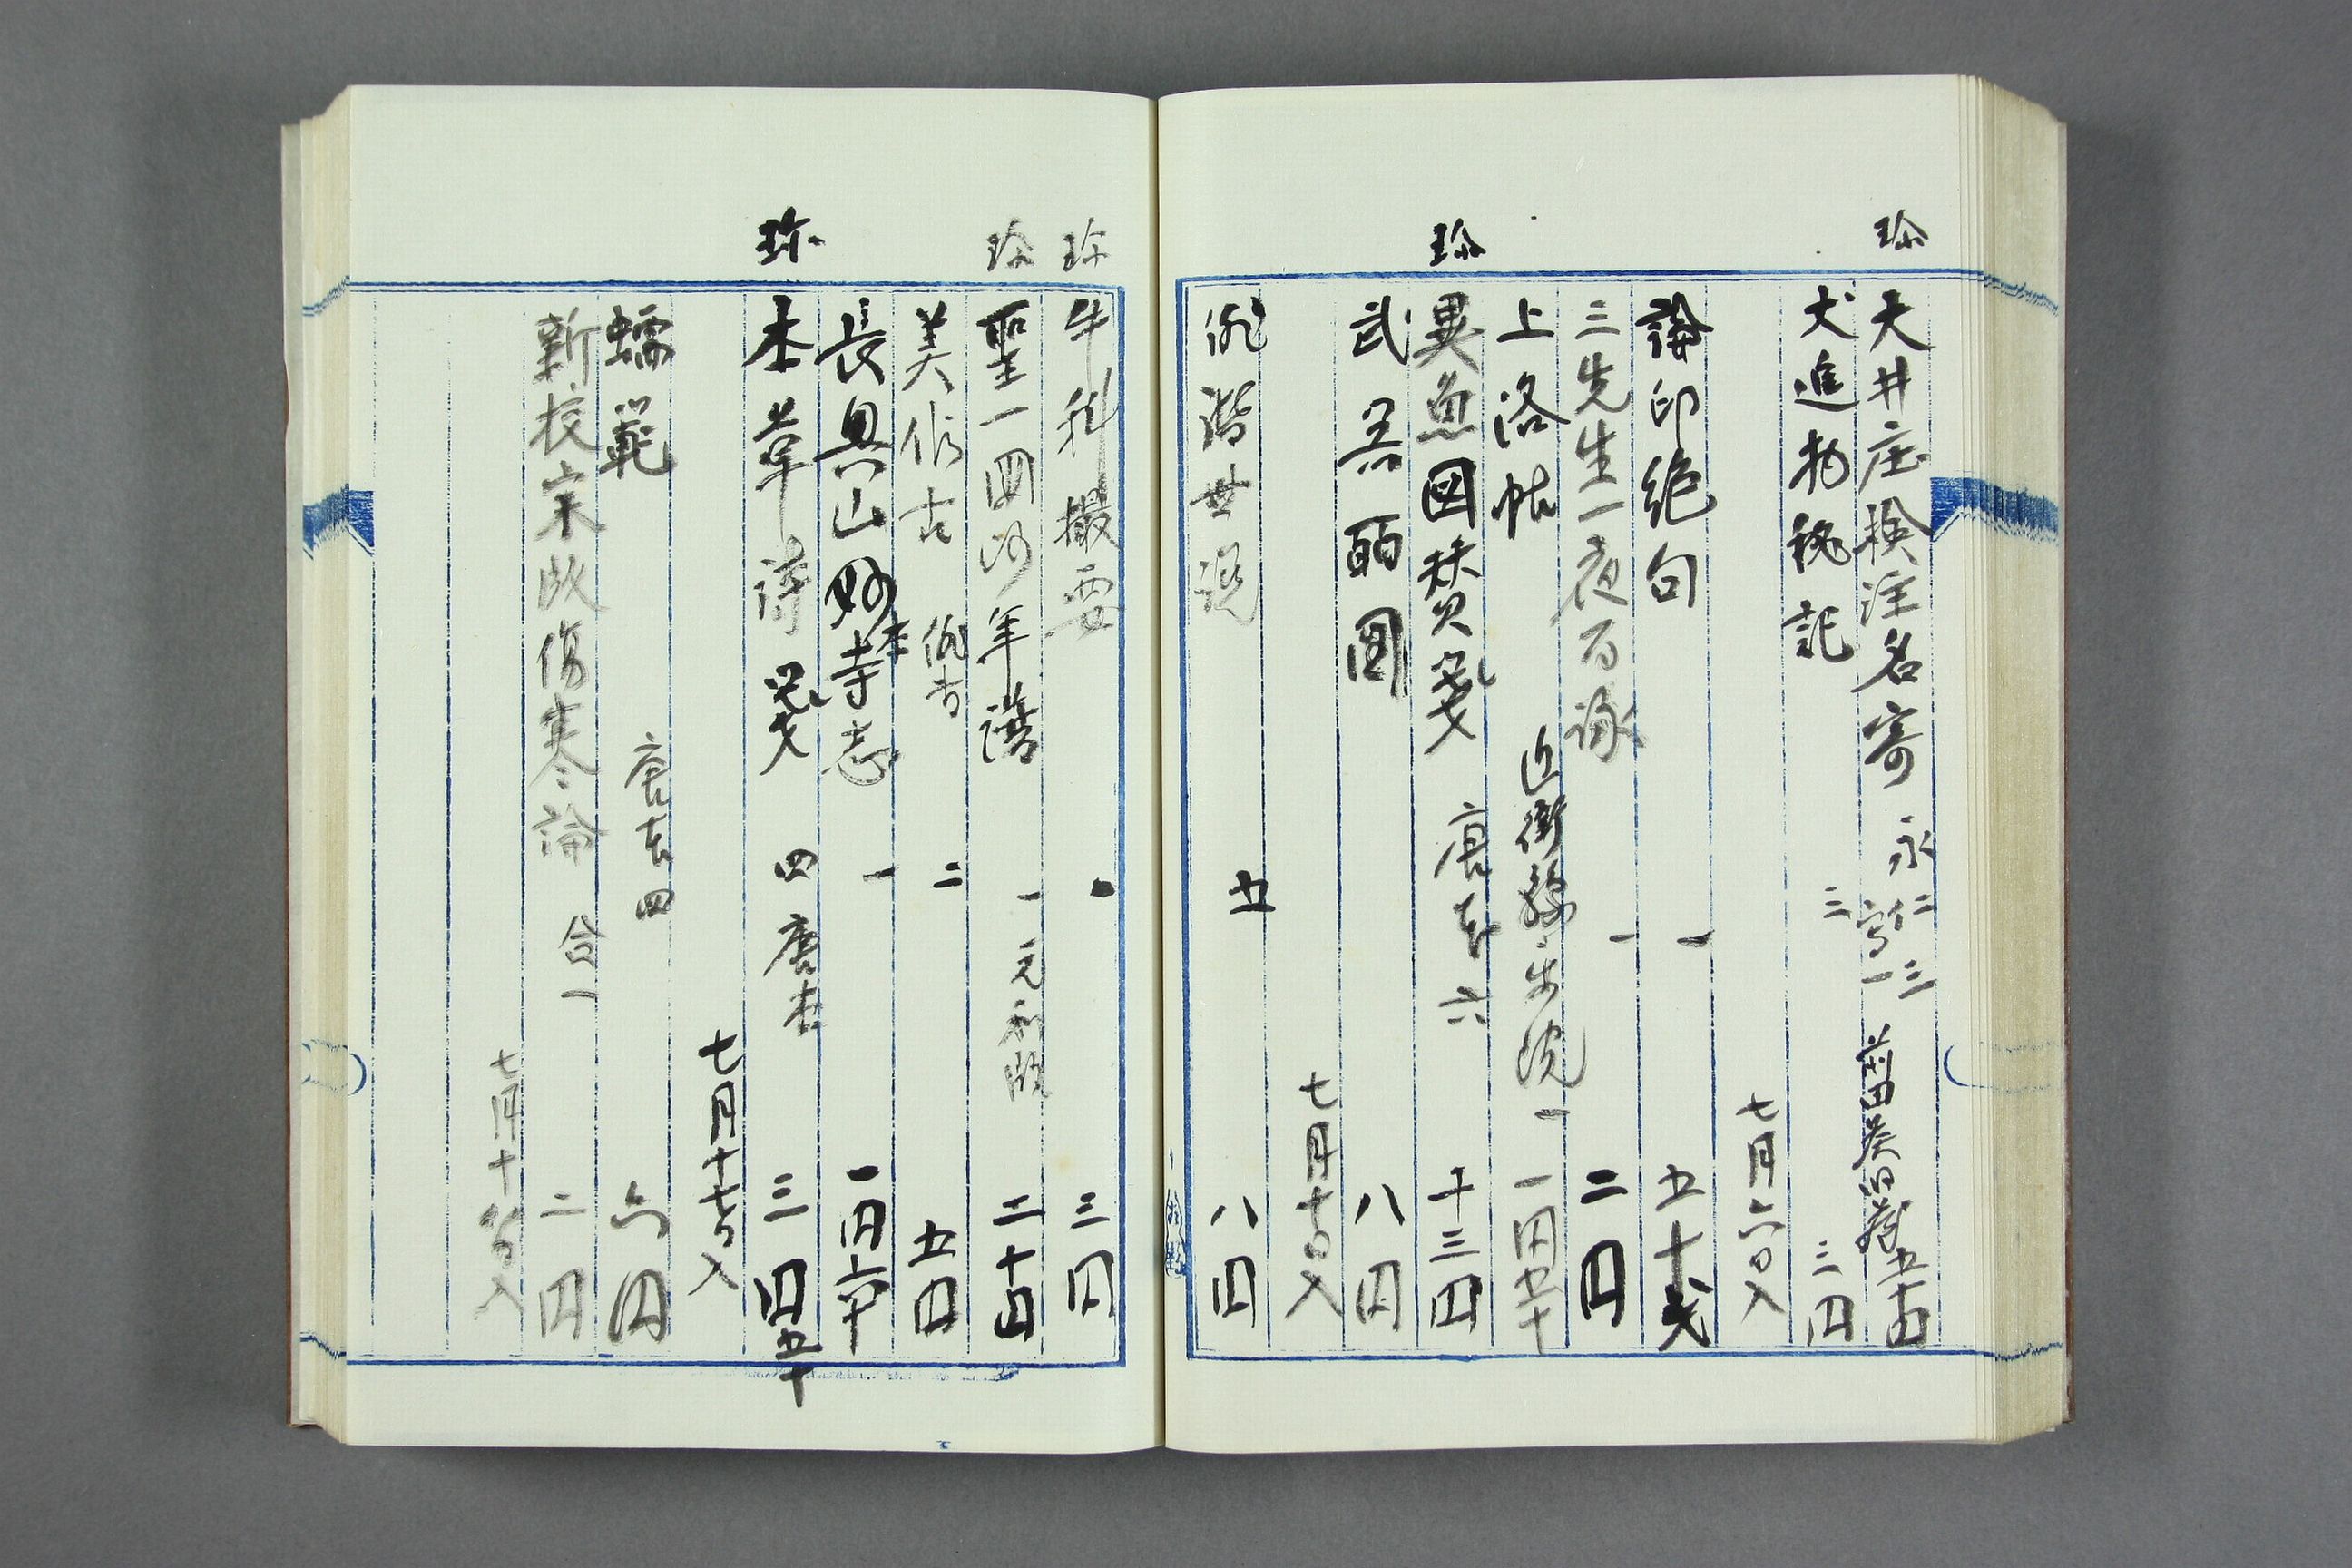 珍
天井庄検注名寄 永仁三 写一 前田葵田蔵 五十円
犬追物秘記 三 三円
七月六日入
論印絶句 一 五十戔
三先生一夜百詠 一 二円
上洛帖 近衛 一 一円五十
珍
異魚図賛箋 唐本 六 十三円
武器図 八円
七月十日入
俳諧世説 五 八円
珍
牛科撮要 三円
珍
聖一国師年譜 一 元和版 二十円
美佐古 俳書 二 五円
長興山妙本寺志 一 一円六十
珍
本草詩箋 四 唐本 三円五十
七月十七日入
蠕範 唐本四 六円
新校宋版傷寒論 合一 二円
七月十八日入